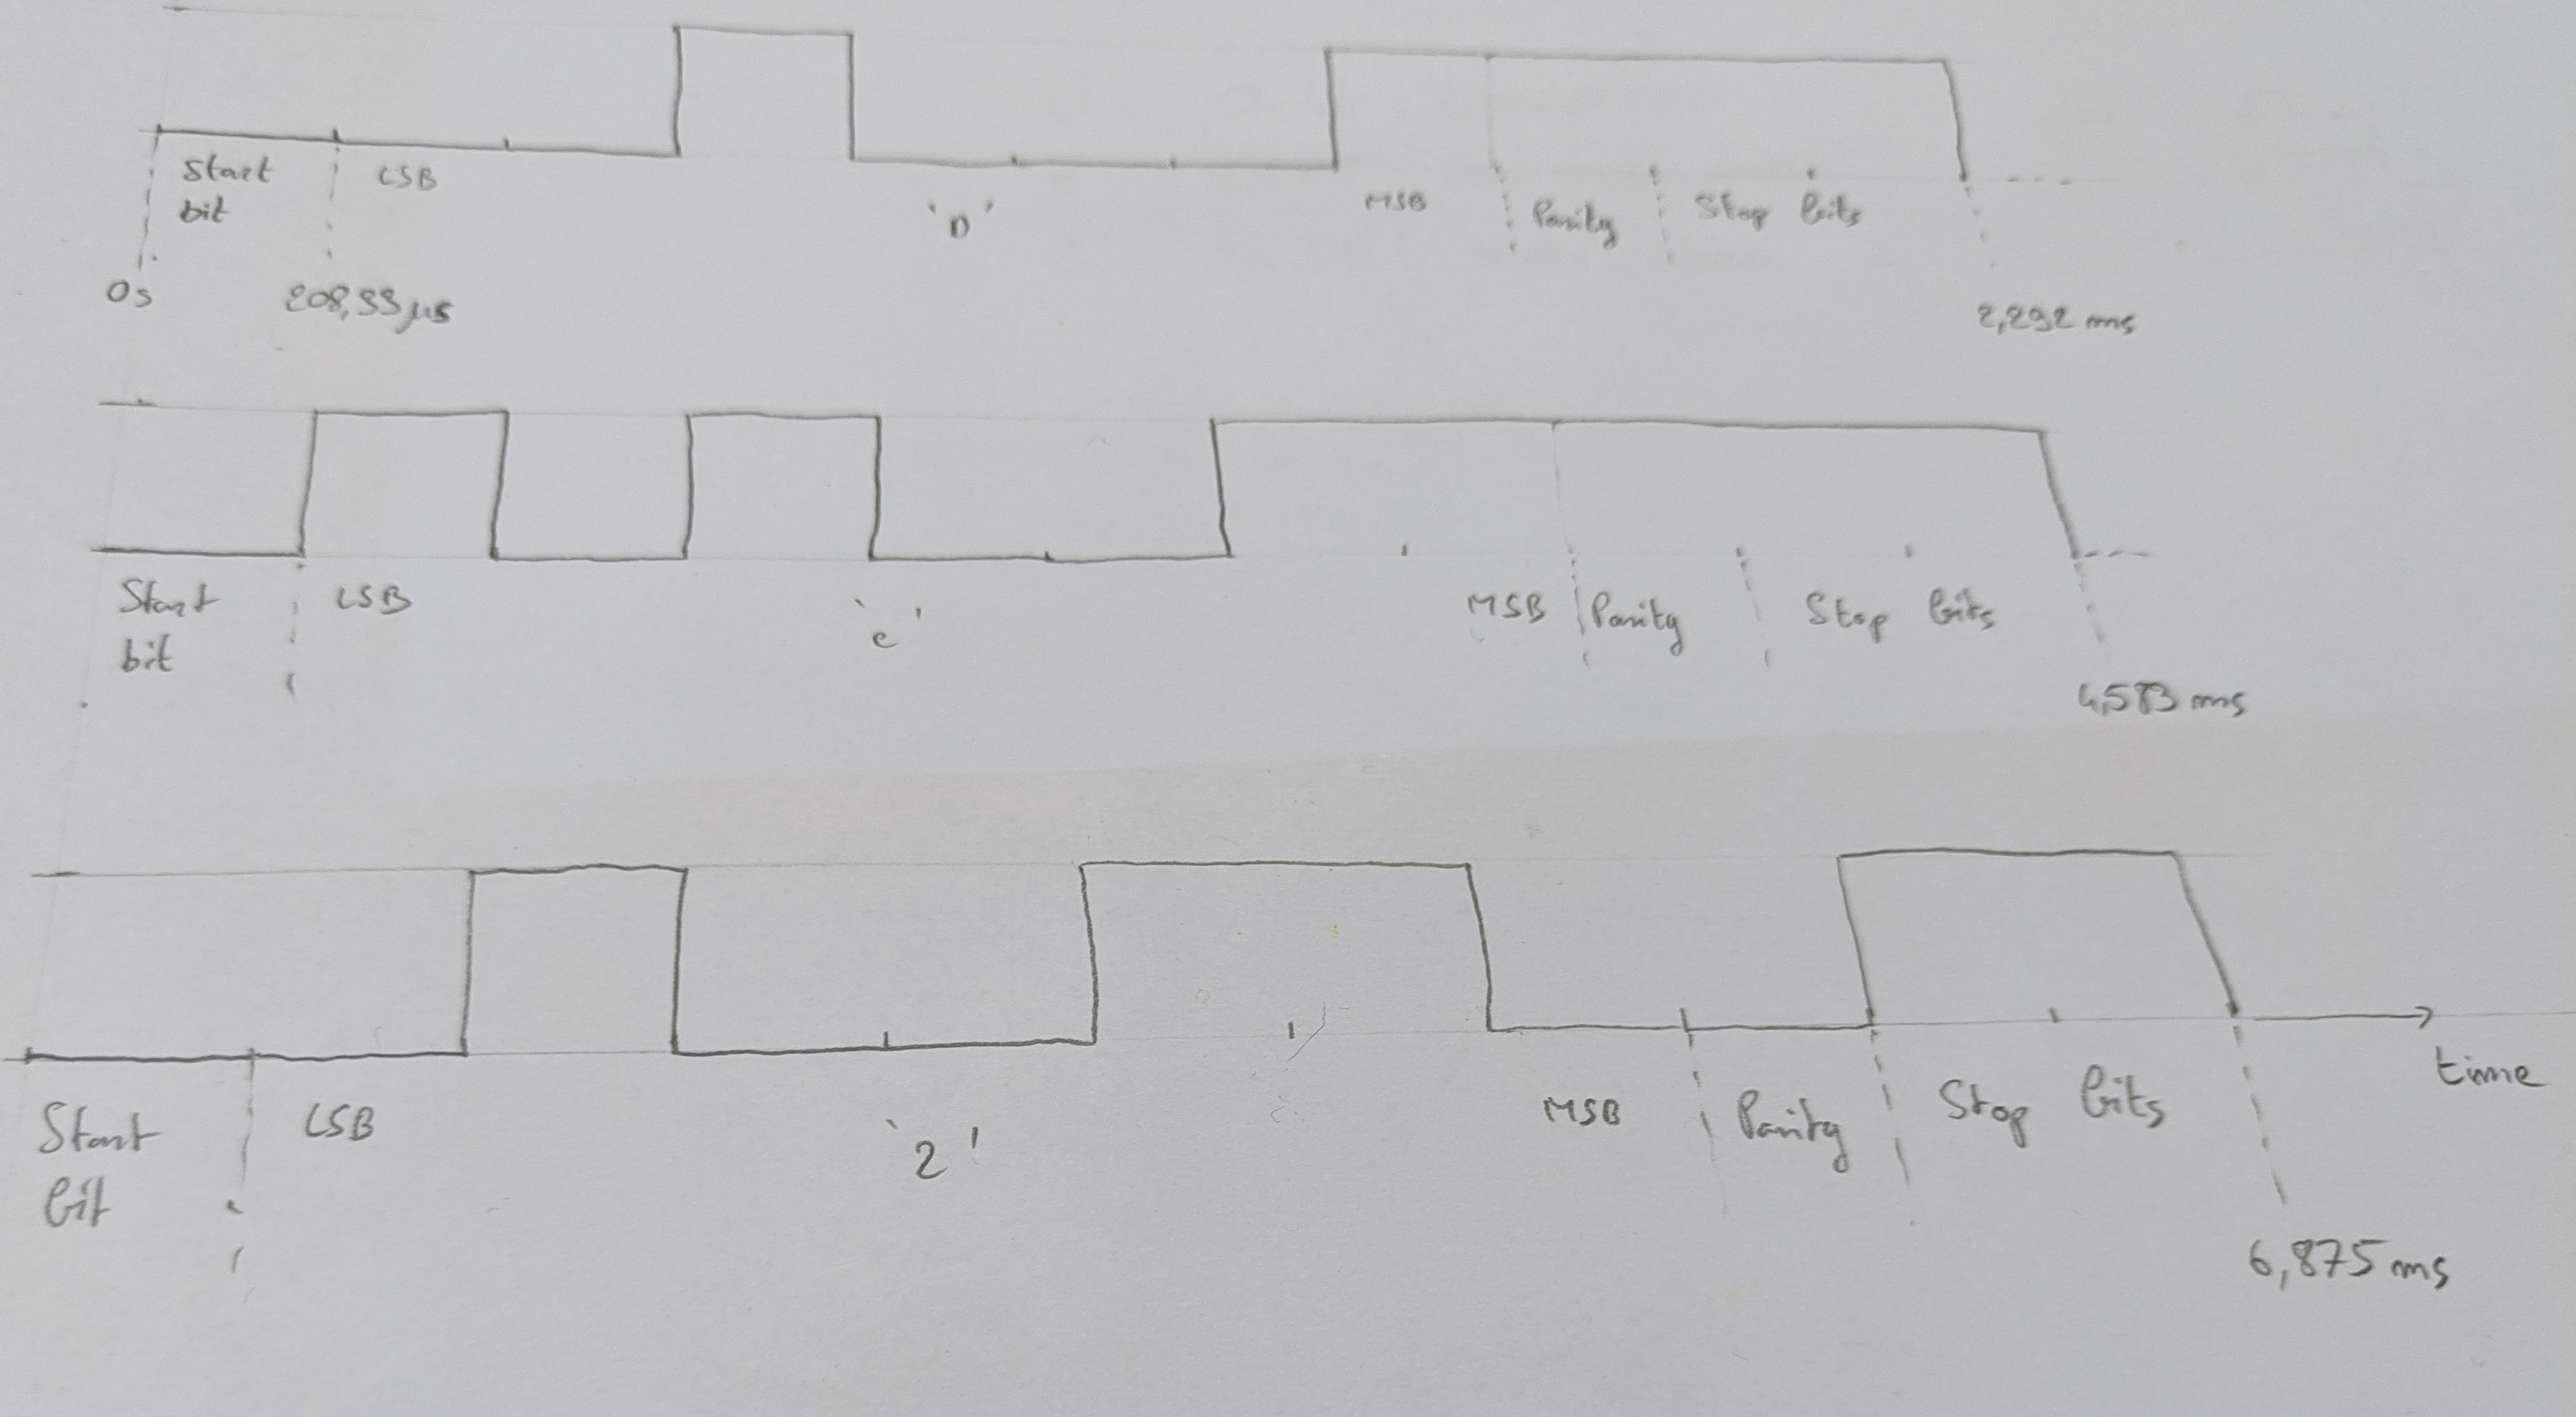 Start LSB
bit 'D' MSB Parity Stop bits
0s 208,33 µs 2,292 ms
Start LSB 'e' MSB Parity Stop bits
bit
4,583 ms
time
Start LSB '2' MSB Parity Stop bits
bit
6,875 ms